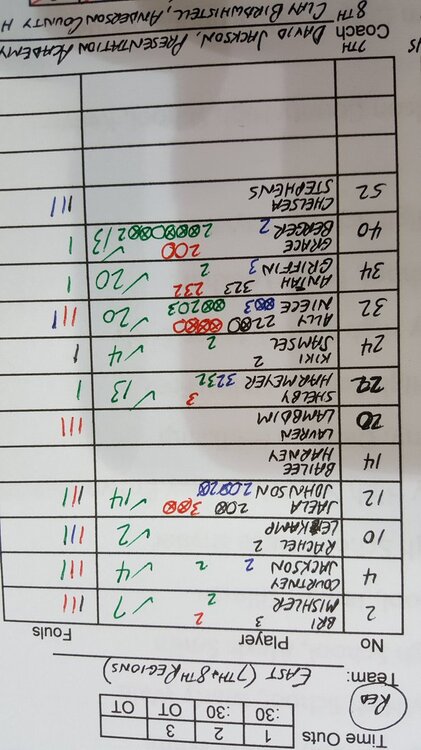 Time Outs
1 2 3
:30 :30 OT OT
RED
Team: EAST (7TH & 8TH REGIONS)
No Player Fouls
2 BRI MISHLER 3 2 2 7
4 COURTNEY JACKSON 2 2 4
10 RACHEL 2 2
12 JAELA JOHNSON 14
14 BAILEE HARNEY
20 LAUREN LAMBDIM
22 SHELBY HARMEYER 3 3232 13
24 KIKI SAMSEL 2 2 4
32 ALLY NIECE 20
34 ANTAH GRIFFIN 323 232 3 2 20
40 GRACE BERGER 2 200 213
52 CHELSEA STEPHENS
Coach 7TH DAVID JACKSON, PRESENTATION ACADEMY
8TH CLAY BIRDWHISTELL, ANDERSON COUNTY H